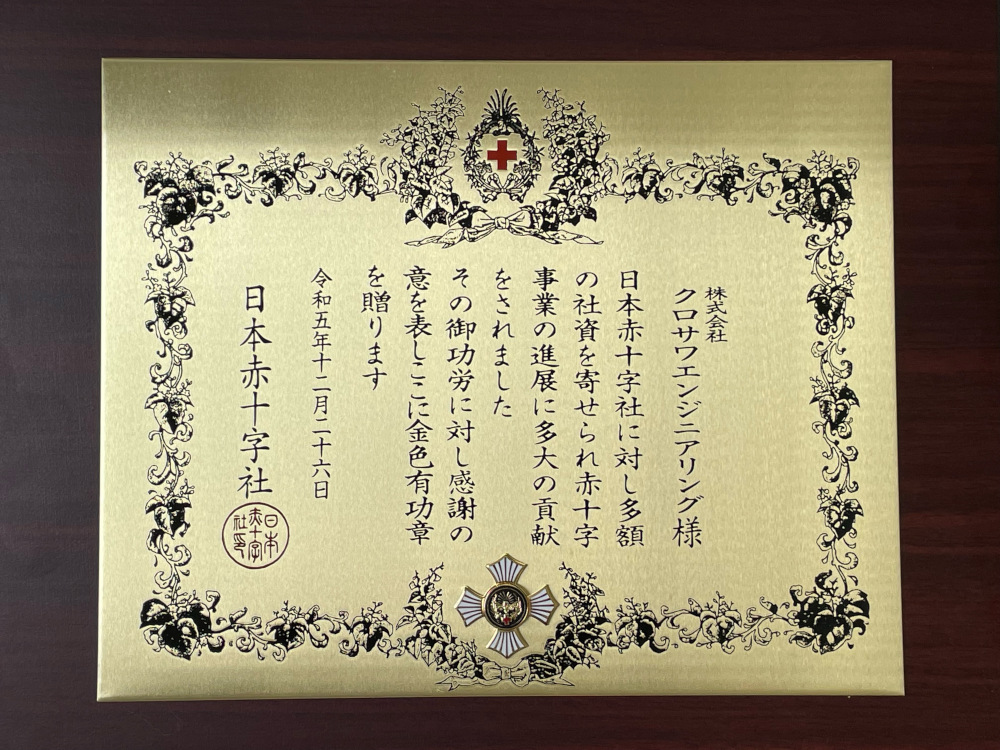 株式会社
クロサワエンジニアリング様
日本赤十字社に対し多額
の社資を寄せられ赤十字
事業の進展に多大の貢献
をされました
その御功労に対し感謝の
意を表しここに金色有功章
を贈ります
令和五年十二月二十六日
日本赤十字社
日本
赤十字
社印